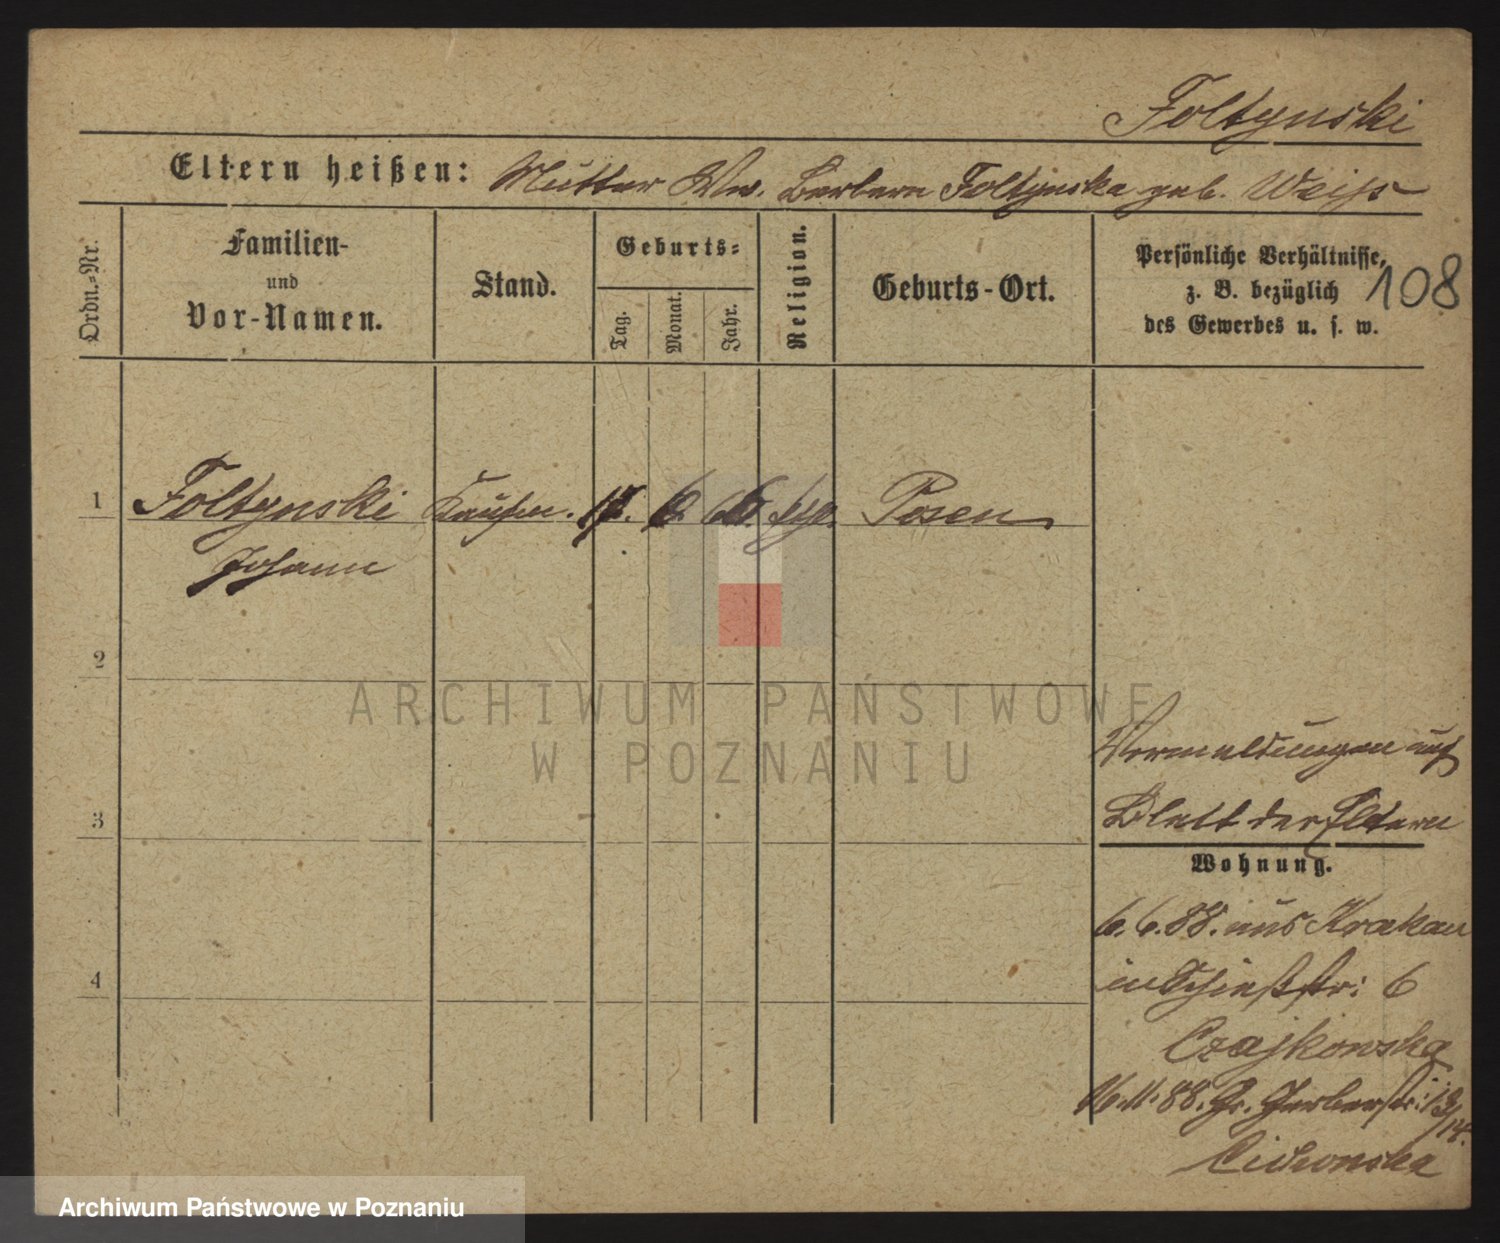 Foltynski
Eltern heißen: Mutter Ww. Barbara Foltynska geb. Weiss
Ordn.-Nr.
Familien- und Vor-Namen.
Stand.
Geburts-
Tag.
Monat.
Jahr.
Religion.
Geburts-Ort.
Persönliche Verhältnisse,
z. B. bezüglich
des Gewerbes u. s. w.
108
1 Foltynski Kaufm. 17. 6. Posen
Johann
2
ARCHIWUM PAŃSTWOWE
W POZNANIU
3
4
Vermeldungen auf
Blatt der Eltern
Wohnung.
6. 6. 88. aus Krakau
in Schießstr: 6
Czajkowska
16. 11. 88. Gr. Gerberstr: 13/14.
Cichonska
Archiwum Państwowe w Poznaniu